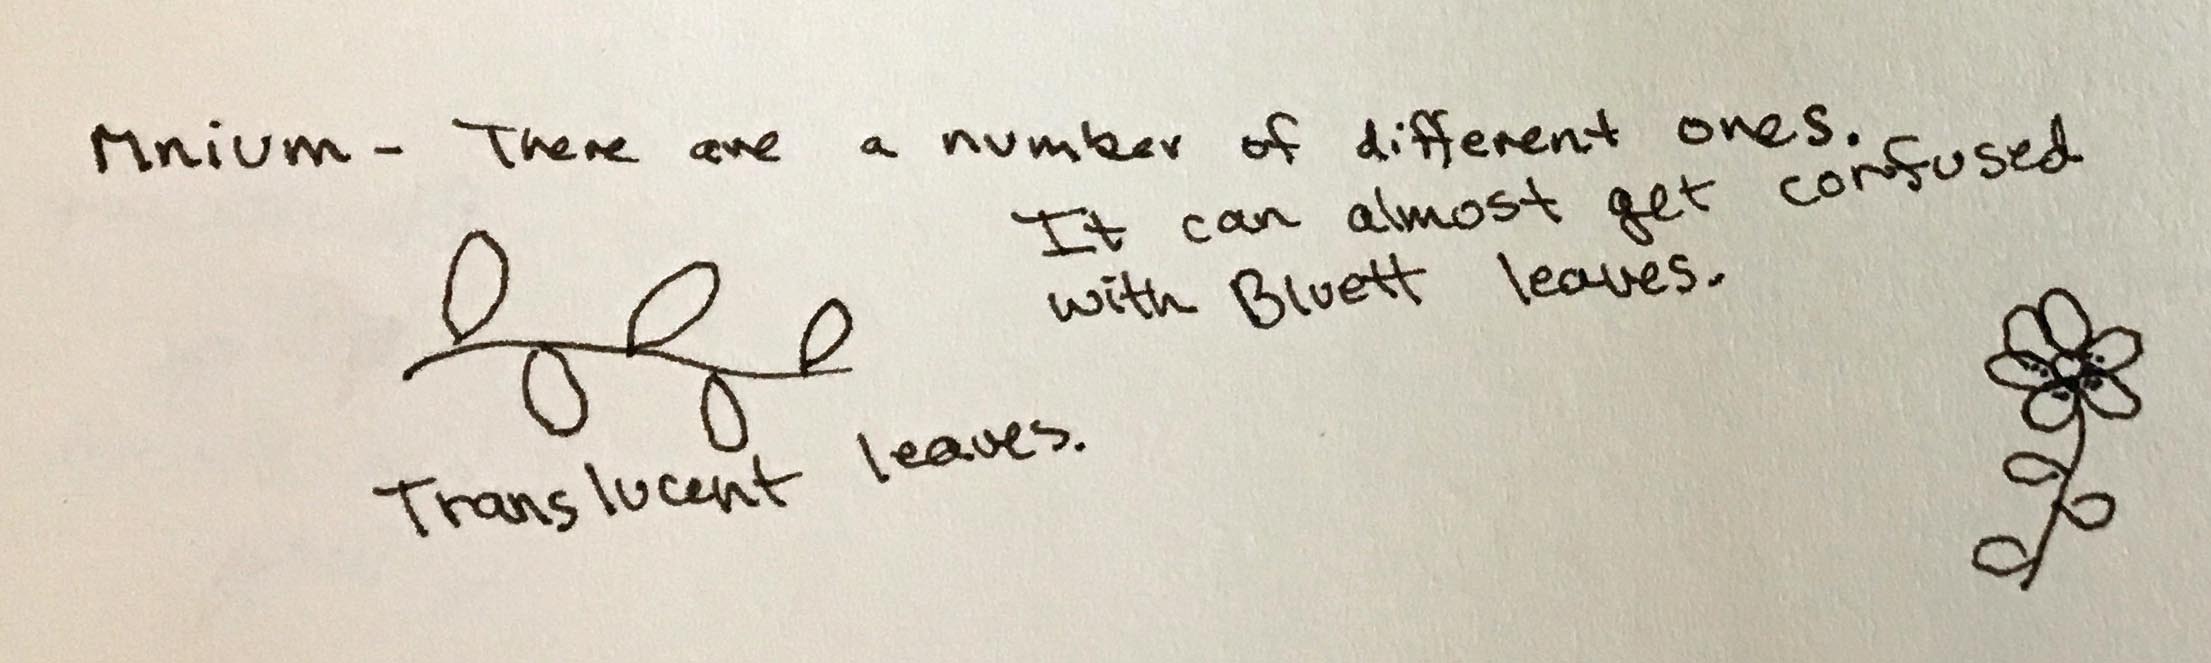 Mnium - There are a number of different ones.
It can almost get confused
with Bluett leaves.
Translucent leaves.